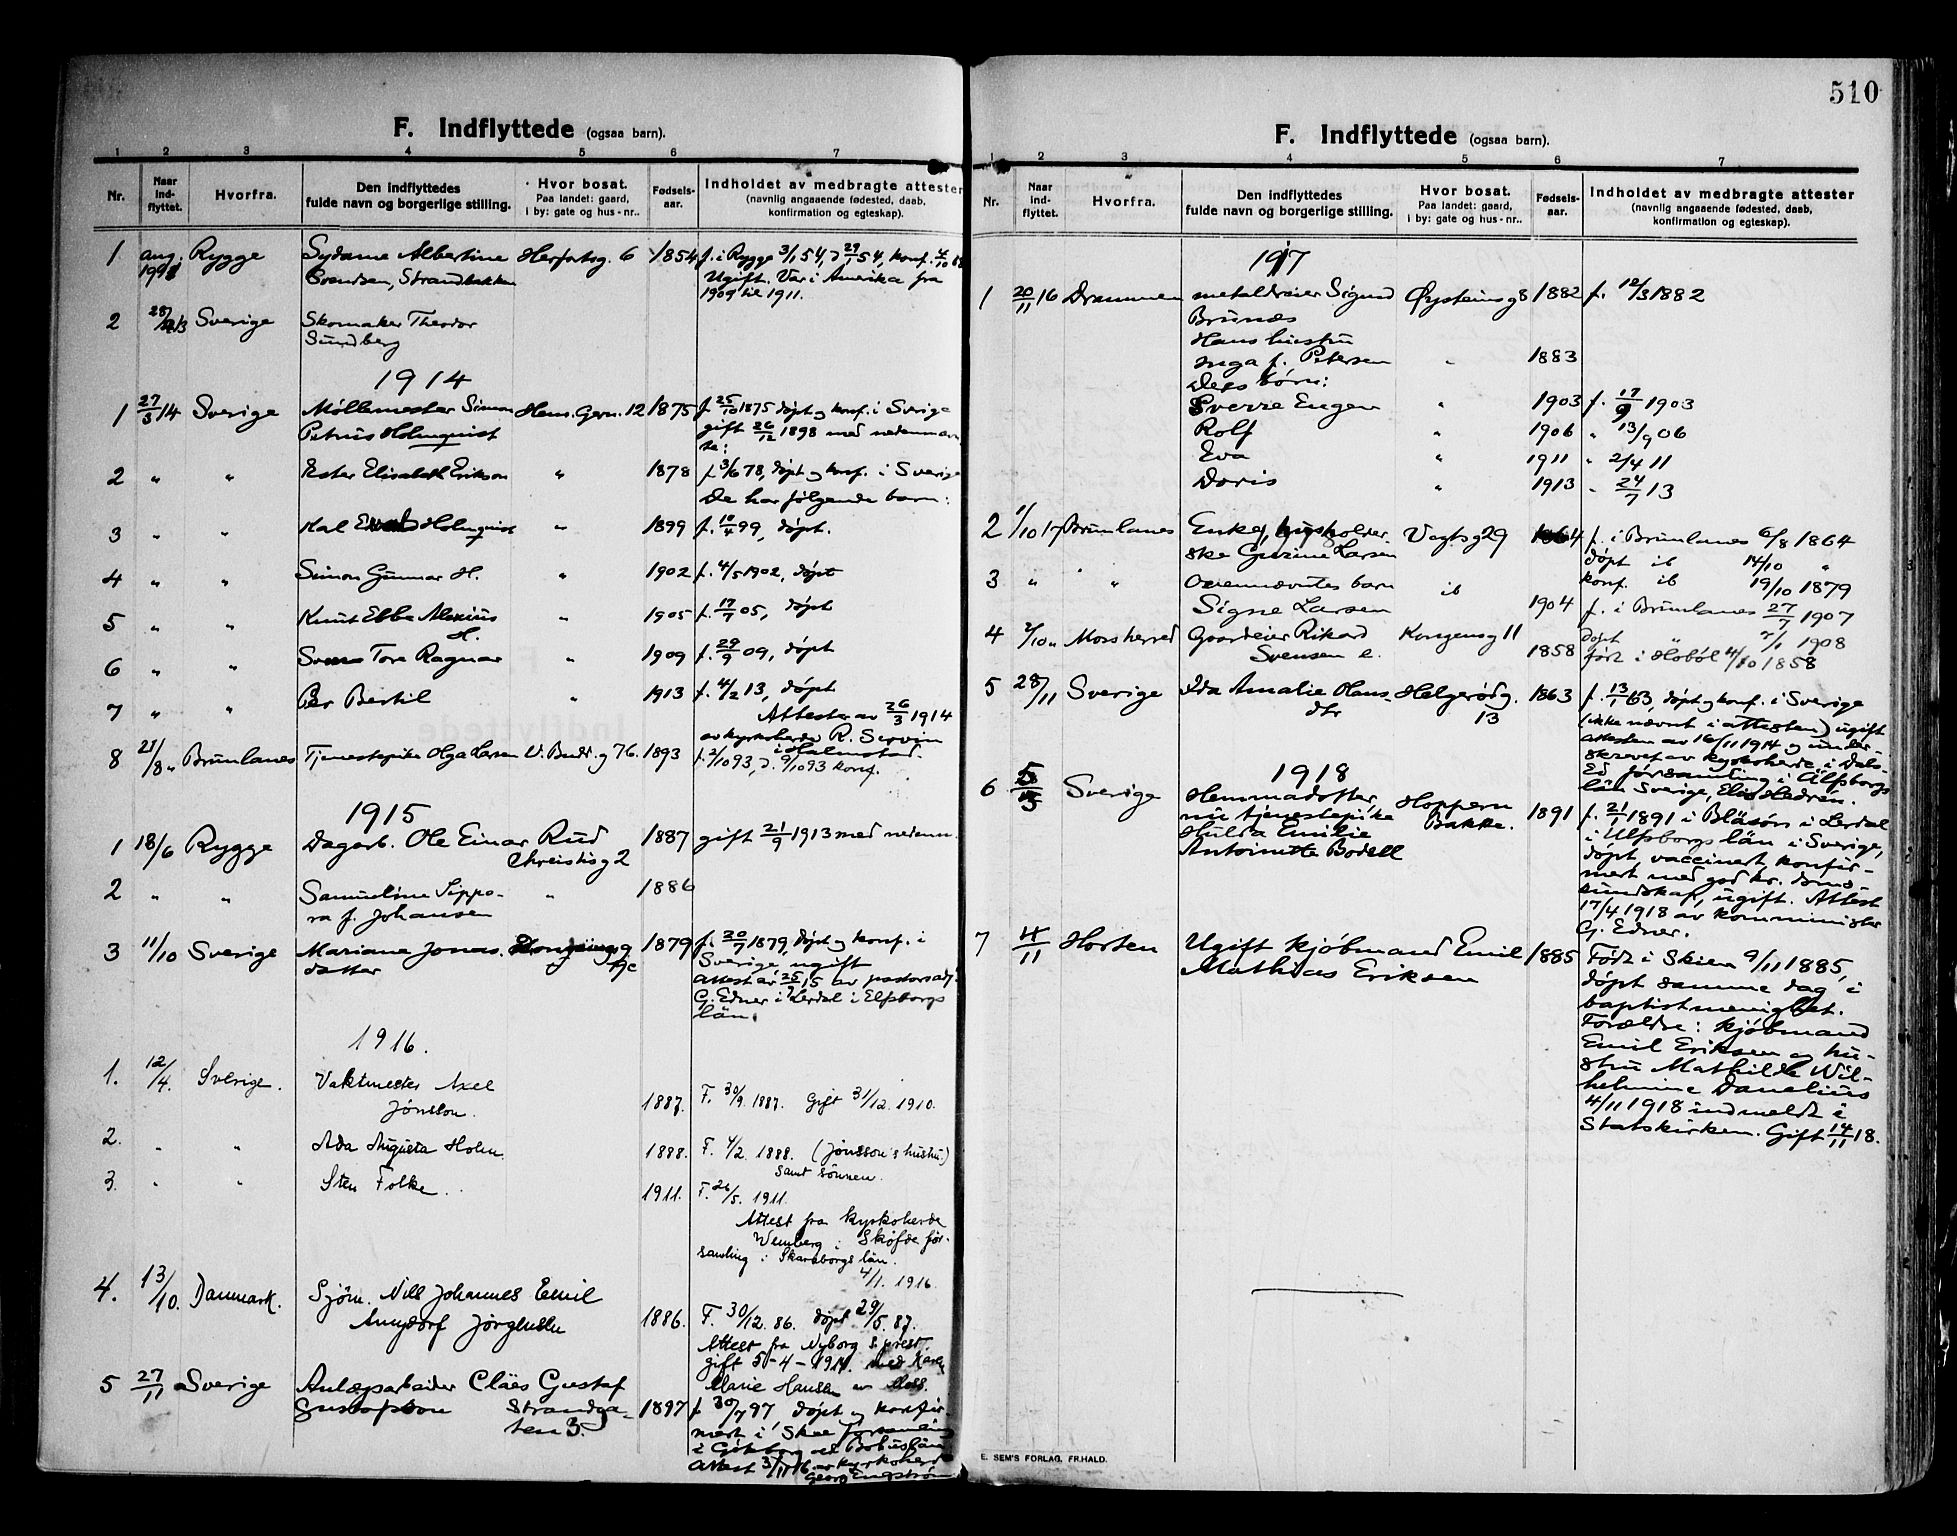 F. Indflyttede (ogsaa barn).
1 2 3 4 5 6 7
Nr. Naar ind-flyttet. Hvorfra. Den indflyttedes fulde navn og borgerlige stilling. Hvor bosat. Paa landet: gaard, i by: gate og hus-nr.. Fødsels-aar. Indholdet av medbragte attester (navnlig angaaende fødested, daab, konfirmation og egteskap).
1 aug. Rygge Sydame Albertine Herfatsg. 6 1854 f. i Rygge 3/1 54, d 29/1 54, konf.
Svendsen, Strandbakken Ugift. Var i Amerika fra
1909 til 1911.
2 Sverige Skomaker Theodor
Sundberg
1914
1 27/3 14 Sverige Møllemester Simon Hens. Gern. 12 1875 f. 25/10 1875 døpt og konf. i Sverige
Petrus Holmquist gift 26/12 1898 med nedennævn-
te:
2 " " Ester Elisabeth Erikson " 1878 f. 3/6 78, døpt og konf. i Sverige
De har følgende barn:
3 " " Kal Holmquist " 1899 f. 10/4 99, døpt.
4 " " Simon Gunnar H. " 1902 f. 4/5 1902, døpt
5 " " Knut Ebbe Alexius " 1905 f. 17/7 05, døpt
H.
6 " " Sven Tore Ragnar " 1909 f. 29/9 09, døpt
7 " " Per Bertil " 1913 f. 4/2 13, døpt
Attester av 26/3 1914
av kyrkoherde R. Servin
i Halmstad.
8 21/8 " Brunlanes Tjenestepike Olga Larsen V. Budr. g 76. 1893 f. 2/10 93, d. 9/10 93 konf.
1915
1 18/6 Rygge Dagarb. Ole Einar Rud 1887 gift 21/9 1913 med nedenn.
Chreistisg 2
2 " " Samueline Sippo- " 1886
ra f. Johansen
3 11/10 Sverige Mariane Jonas- 1879 f. 20/7 1879, døpt og konf. i
datter Sverige, ugift
Attest av 25/9 15 av pastorsadj.
G. Edner i Lerdal i Elfsborgs
län.
1916.
1. 12/4. Sverige. Vaktmester Axel
Jönsson. 1887. F. 30/9. 1887. Gift 31/12. 1910.
2. " " Ada Augusta Holm. 1888. F. 4/2. 1888. (Jönsson's hustru)
samt sönnen.
3. " " Sten Folke. 1911. F. 26/5. 1911.
Attest fra kyrkoherde
Wenberg i Sköfde för-
samling i Skaraborgs län.
4/1. 1916.
4. 13/10. Danmark. Sjöm. Nils Johannes Emil
Amsdorf Jörgensen 1886. F. 30/12. 86. döpt 29/5. 87.
Attest fra Nyborg s. prest.
gift 5-4-1914. med Karen
Marie Hansen av Moss.
5 27/11 Sverige Anlægsarbeider Claes Gustaf
Gustafsson Strandga- 1897 f. 30/7 97 døpt og konfir-
ten 3. mert i Skee forsamling
i Göteborg och Bohuslän
attest 3/11 16 av kyrkoherde
Georg Engström
510
F. Indflyttede (ogsaa barn).
1 2 3 4 5 6 7
Nr. Naar ind-flyttet. Hvorfra. Den indflyttedes fulde navn og borgerlige stilling. Hvor bosat. Paa landet: gaard, i by: gate og hus-nr.. Fødsels-aar. Indholdet av medbragte attester (navnlig angaaende fødested, daab, konfirmation og egteskap).
1917
1 20/11 16 Drammen metaldreier Sigurd Øysteinsg 8 1882 f. 12/3 1882
Brunæs
Hans hustru
Inga f. Petersen " 1883
Deres børn:
Sverre Eugen " 1903 f. 17/9 1903
Rolf " 1906 " 13/9 06
Eva " 1911 " 2/4 11
Doris " 1913 " 24/7 13
2 1/10 17 Brunlanes Enke, husholder- Vogtsg 29 1864 f. i Brunlanes 6/8 1864
ske Gurine Larsen døpt ib 14/10 "
konf. ib 19/10 1879
3 " " " Ovennævntes barn ib
Signe Larsen 1904 f. i Brunlanes 27/7 1907
døpt 1/1 1908
4 2/10 " Mossherred Gaardeier Rikard Kongensg 11
Svensen e. 1858 født i Hobøl 4/10 1858
5 28/11 Sverige Ida Amalie Hans- Helgerødg. 1863 f. 13/1 63, døpt og konf. i Sverige
dtr 13 (ikke nævnt i attesten) ugift
attesten av 16/11 1914 og under-
skrevet av kyrkoherde i Dals-
Ed församling i Älfsborgs
län Sverige, Elis Hedrén.
1918
6 5/3 Sverige Hemmadotter, Hoppern
nu tjenestepike Bakke. 1891 f. 21/1 1891 i Bläsön i Lerdal
Hulda Emilie i Ulfsborgs län i Sverige,
Antoinette Bodell døpt, vaccinert, konfir-
mert med god kr.
kundskap, ugift. Attest
17/4 1918 av komminister
G. Edner.
7 4/11 Horten Ugift kjøbmand Emil 1885 Født i Skien 9/11 1885,
Mathias Eriksen døpt samme dag i
baptistmenighet.
Forældre: kjøbmand
Emil Eriksen og hu-
stru Mathilde Wil-
helmine Danelius
4/11 1918 indmeldt i
Statskirken. Gift 14/11 18.
E. SEM'S FORLAG, FR.HALD.